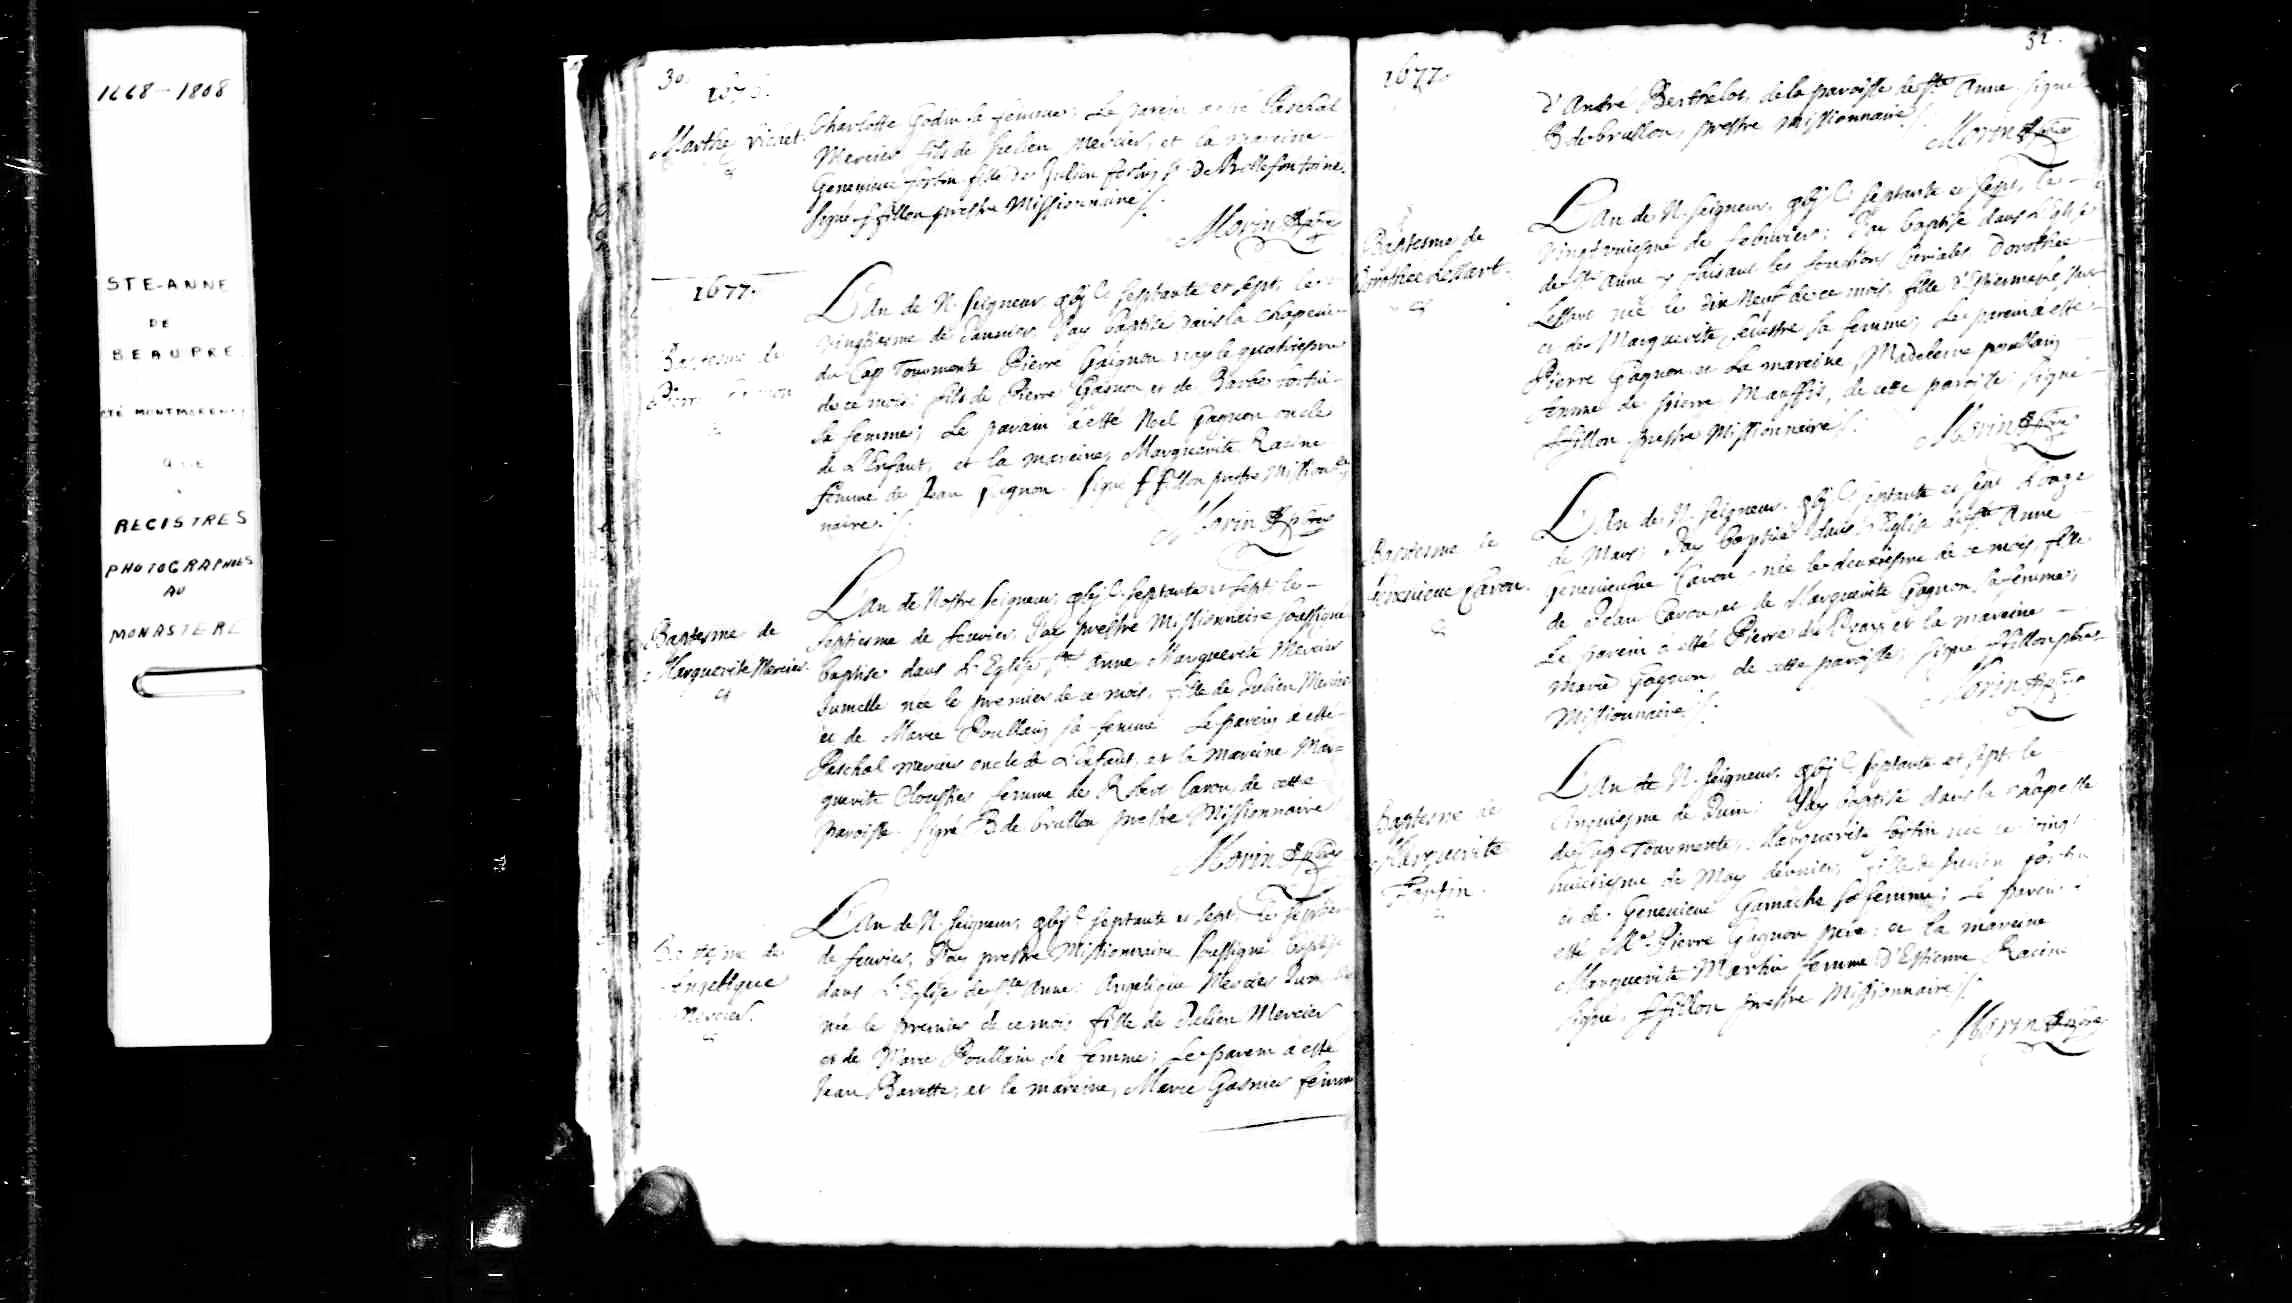 1668-1808
STE-ANNE
DE
BEAUPRE
CTÉ MONTMORENCY
QUE
REGISTRES
PHOTOGRAPHIÉS
AU
MONASTERE
30.
1676.
Marthe Vichet.
Charlotte Godin sa femme; Le parein a esté Paschal
Mercier fils de Julien Mercier, et la mareine
Geneuieue fortin fille de Julien fortin Sr De Bellefontaine.
Signé f fillon prestre Missionnaire /.
Morin Ptre
1677.
Baptesme de
Pierre
L'an de N. Seigneur gbjC septante et sept le
vingtiesme de Januier J'ay baptisé dans la chapelle
du Cap Tourmente Pierre Gaignon nay le quatriesme
de ce mois fils de Pierre Gagnon et de Barbe fortin
sa femme; Le parain a esté Noel Gagnon oncle
de L'Enfant, et la mareine, Marguerite Racine
femme de Jean Gagnon. Signé f fillon prestre Mission
naire /.
Morin Ptre
Baptesme de
Marguerite Mercier.
L'an de Nostre Seigneur gbjC septante et sept le
septiesme de feurier, J'ay prestre Missionnaire soussigné
baptisé dans L'Eglise Ste Anne Marguerite Mercier
Jumelle née le premier de ce mois, fille de Julien Mercier
et de Marie Poullain sa femme Le parein a esté
Paschal mercier oncle de L'Enfant, et la mareine Mar=
guerite Cloustier femme de Robert Caron, de cette
paroisse. Signé B de brullon prestre Missionnaire
Morin Ptre
Baptesme de
Angelique
Mercier.
L'an de N. Seigneur, gbjC septante et sept, le
de feurier, J'ay prestre Missionnaire soussigné baptisé
dans L'Eglise de Ste Anne: Angelique Mercier
née le premier de ce mois fille de Julien Mercier
et de Marie Poullain sa femme; Le parein a esté
Jean Barette, et la mareine, Marie Gasnier femme
1677.
d'André Berthelot, de la paroisse de Ste Anne, signé
B de brullon, prestre Missionnaire /.
Morin Ptre
Baptesme de
Dorothée Lessart.
L'an de N. Seigneur, gbjC septante et sept, le
de feburier; J'ay baptisé dans L'Eglise
de Ste Anne y faisant les fonctions Curiales Dorothée
Lessart née le dix neuf de ce mois, fille d'Estienne
et de Marguerite Seuestre sa femme; Le parein a esté
Pierre Gagnon et La mareine, Madeleine poullain
femme de pierre Mauffis, de cette paroisse; signé
f fillon prestre Missionnaire /.
Morin Ptre
Baptesme de
Geneuieue Caron.
L'an de N. Seigneur. gbjC septante et sept L'onze
de Mars; J'ay baptisé dans L'Eglise de Ste Anne
Geneuieue Caron née le deuxiesme de ce mois, fille
de Jean Caron, et de Marguerite Gagnon, sa femme;
Le parein a esté Pierre et la mareine
Marie Gagnon, de cette paroisse; signé f fillon ptre
Missionnaire /.
Morin Ptre
Baptesme de
Marguerite
Fortin.
L'an de N. Seigneur. gbjC septante et sept le
cinquiesme de Juin: J'ay baptisé dans la chapelle
du Cap Tourmente, Marguerite fortin née le vingt
huictiesme de May dernier, fille de Julien fortin
et de Geneuieue Gamache sa femme; Le parein a
esté Mr Pierre Gagnon pere: et la mareine
Marguerite Martin femme D'Estienne Racine
signé. f fillon prestre Missionnaire /.
Morin Ptre